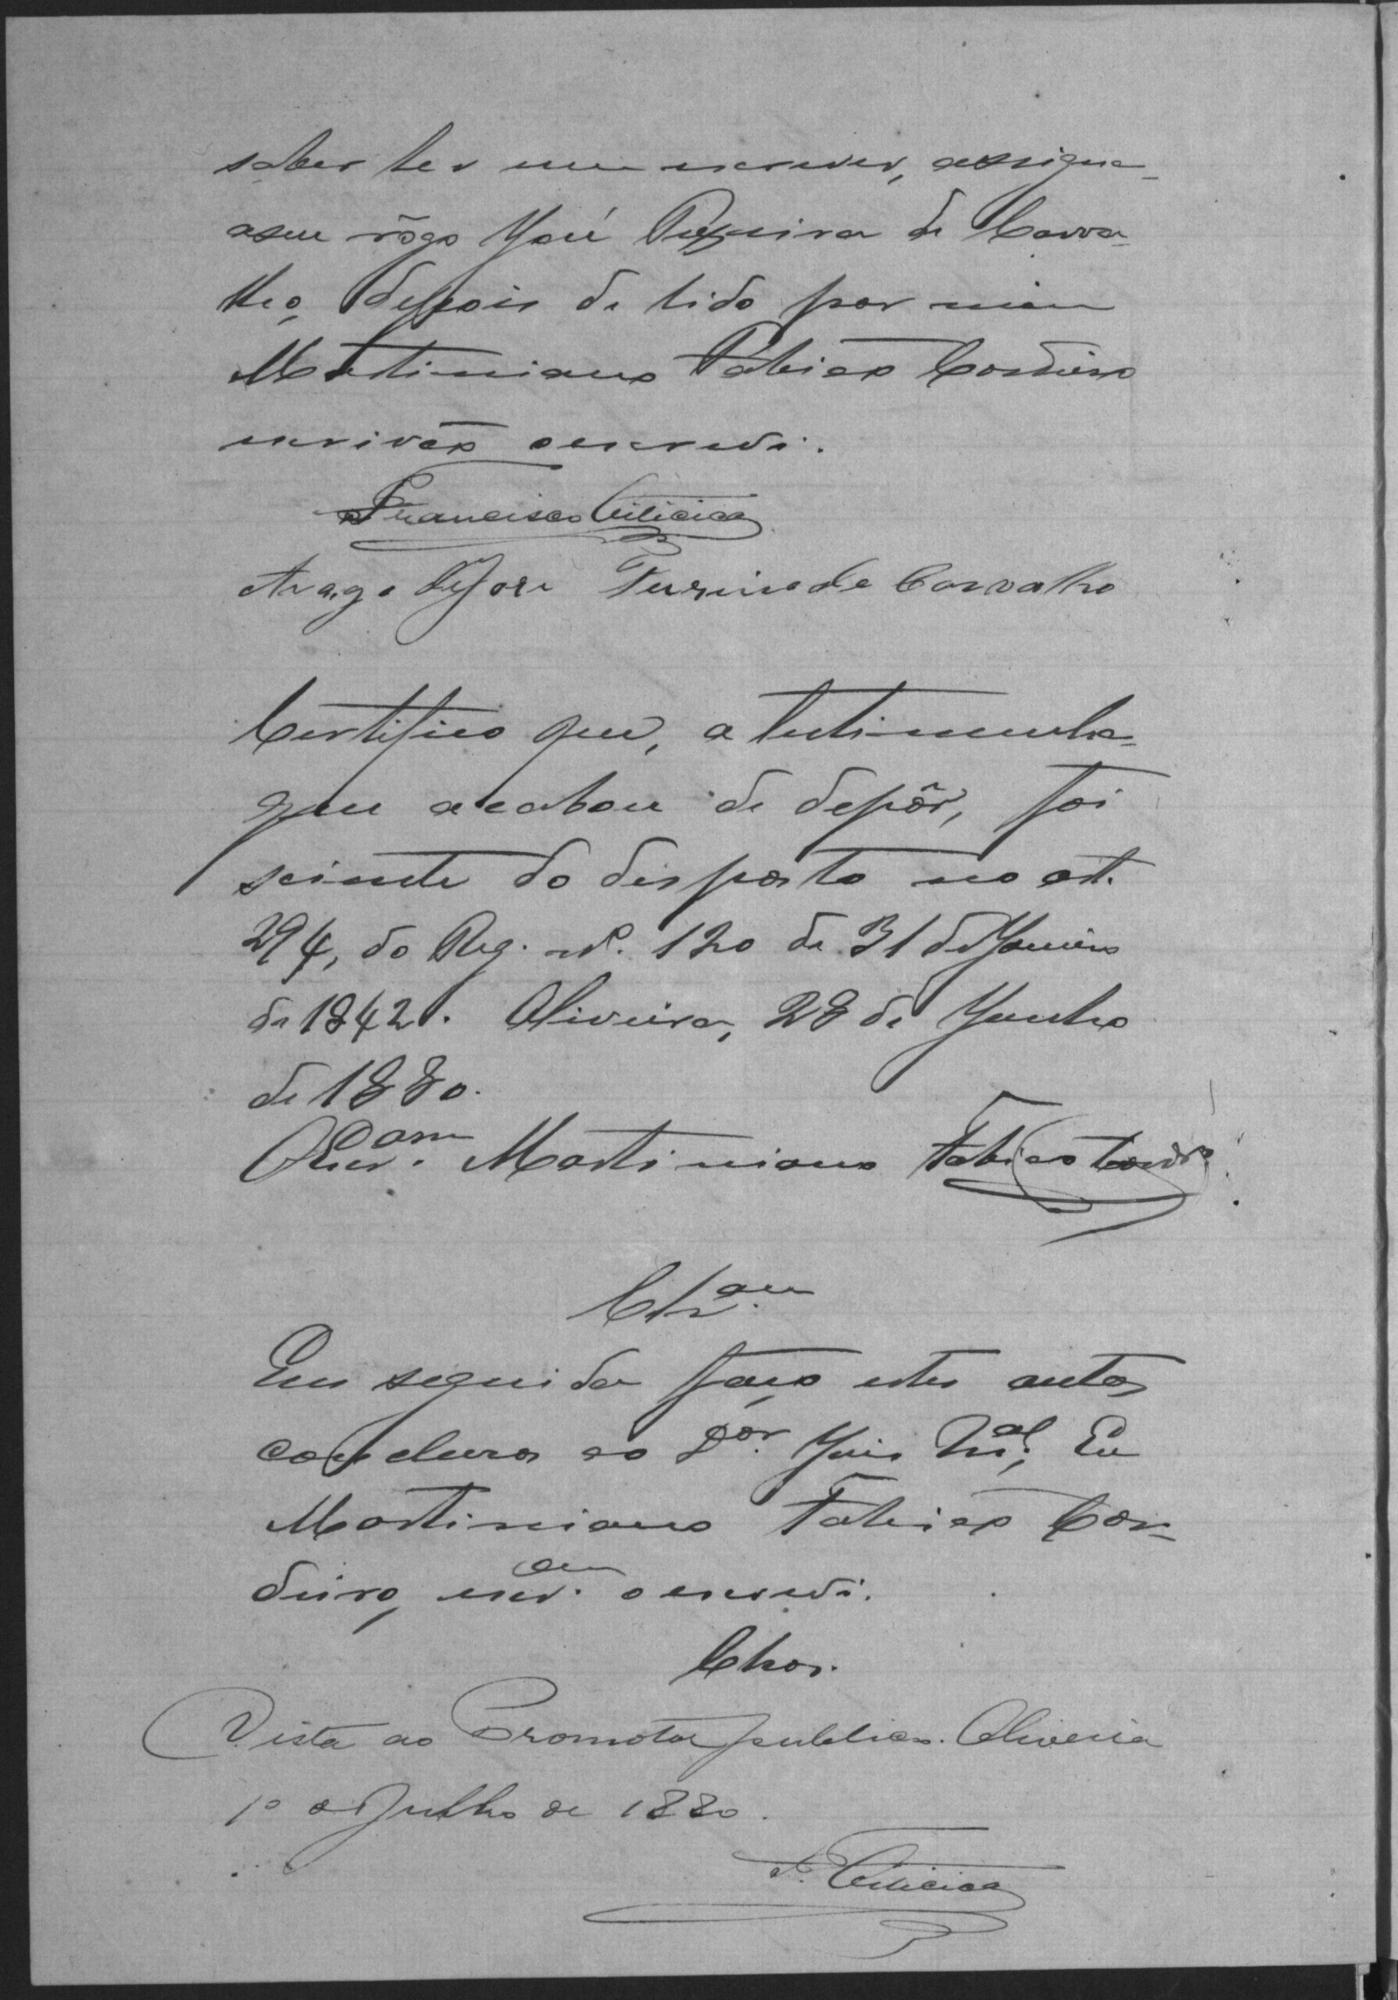 saber ler nem escrever, assigna
a seu rôgo José Pereira de Carva-
lho, depois de lido por mim
Martiniano Fabião Cordeiro
escrivão o escrevi.
Francisco
José Pereira de Carvalho
Certifico que, a testimunha
que acabou de depôr, foi
sciente do disposto no art.
294, do Reg. nº. 120 de 31 de Janeiro
de 1842. Oliveira, 28 de Junho
de 1880.
O Escr.am Martiniano Fabião Cordro
Clz.am
Em seguida faço estes autos
conclusos ao Dor. Juis Mal, Eu
Martiniano Fabião Cor-
deiro, escr.am o escrevi.
Clsos.
Vista ao Promotor publico. Oliveira
1º de Julho de 1880.
F.